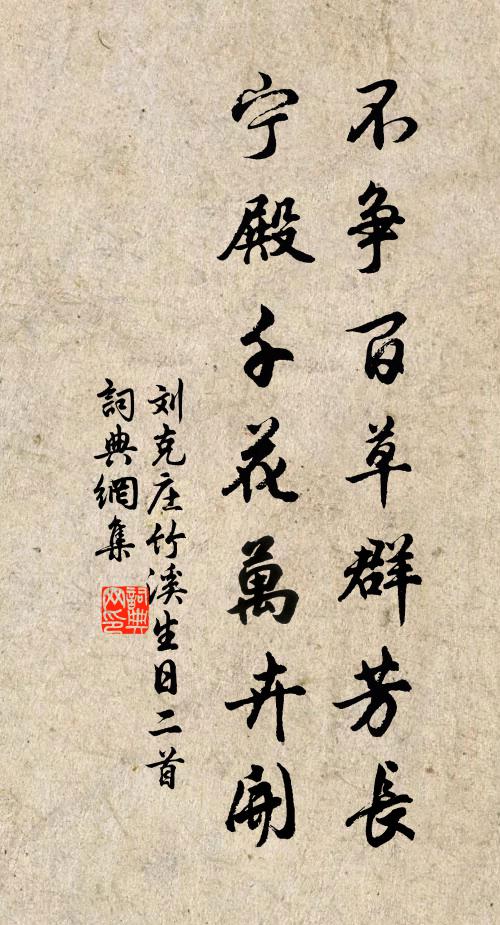 不争百草群芳長
宁殿千花萬卉開
刘克庄竹溪生日二首
詞典網集
詞典网印